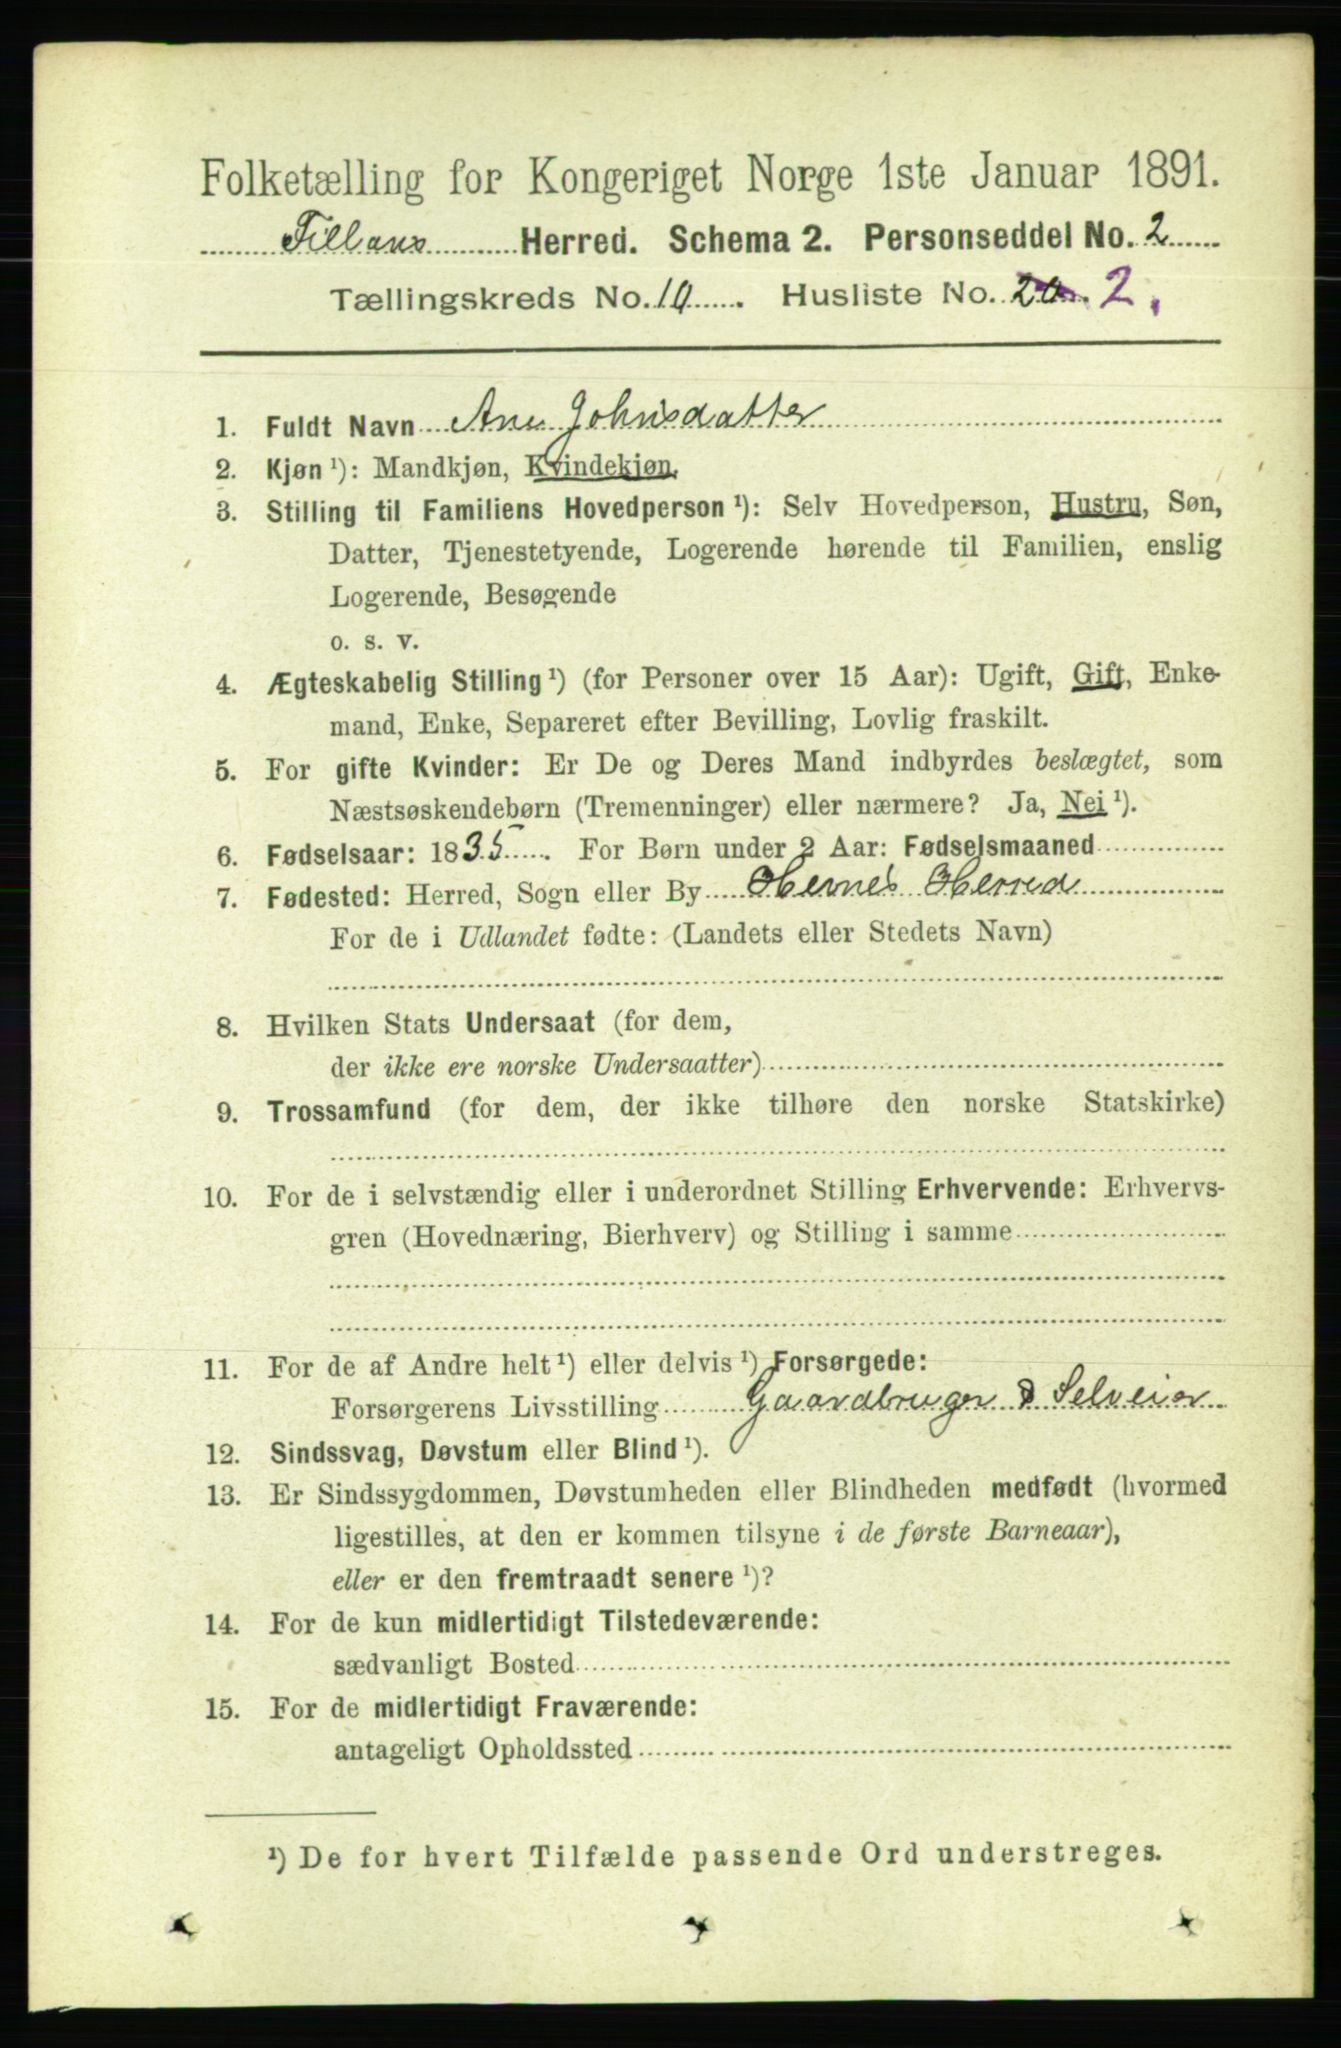 Folketælling for Kongeriget Norge 1ste Januar 1891.
Fillans Herred. Schema 2. Personseddel No. 2
Tællingskreds No. 10. Husliste No. 20. 2.
1. Fuldt Navn Ane Johnsdatter
2. Kjøn ¹): Mandkjøn, Kvindekjøn.
3. Stilling til Familiens Hovedperson ¹): Selv Hovedperson, Hustru, Søn,
Datter, Tjenestetyende, Logerende hørende til Familien, enslig
Logerende, Besøgende
o. s. v.
4. Ægteskabelig Stilling ¹) (for Personer over 15 Aar): Ugift, Gift, Enke-
mand, Enke, Separeret efter Bevilling, Lovlig fraskilt.
5. For gifte Kvinder: Er De og Deres Mand indbyrdes beslægtet, som
Næstsøskendebørn (Tremenninger) eller nærmere? Ja, Nei ¹).
6. Fødselsaar: 1835. For Børn under 2 Aar: Fødselsmaaned
7. Fødested: Herred, Sogn eller By Hevne's Herred
For de i Udlandet fødte: (Landets eller Stedets Navn)
8. Hvilken Stats Undersaat (for dem,
der ikke ere norske Undersaatter)
9. Trossamfund (for dem, der ikke tilhøre den norske Statskirke)
10. For de i selvstændig eller i underordnet Stilling Erhvervende: Erhvervs-
gren (Hovednæring, Bierhverv) og Stilling i samme
11. For de af Andre helt ¹) eller delvis ¹) Forsørgede:
Forsørgerens Livsstilling Gaardbruger & Selveier
12. Sindssvag, Døvstum eller Blind ¹).
13. Er Sindssygdommen, Døvstumheden eller Blindheden medfødt (hvormed
ligestilles, at den er kommen tilsyne i de første Barneaar),
eller er den fremtraadt senere ¹)?
14. For de kun midlertidigt Tilstedeværende:
sædvanligt Bosted
15. For de midlertidigt Fraværende:
antageligt Opholdssted
¹) De for hvert Tilfælde passende Ord understreges.